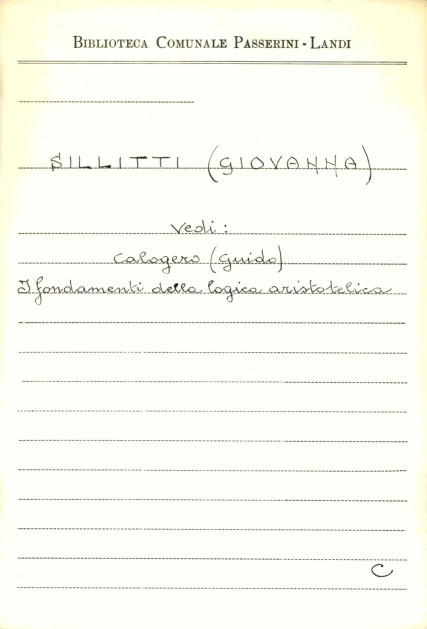 BIBLIOTECA COMUNALE PASSERINI - LANDI
SILLITTI (GIOVANNA)
Vedi :
Calogero (Guido)
I fondamenti della logica aristotelica
C